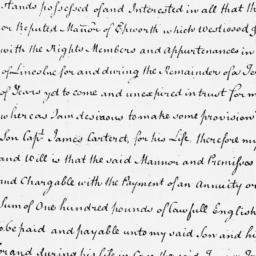 stands possessed of and Interested in all that th
or Reputed Mannor of Epworth which Westwood
with the Rights Members and appurtenances in
of Lincolne for and during the Remainder of a Te
of Years yet to come and unexpired in trust for m
whereas I am desirous to make some provision
Son Capt James Carteret, for his Life, therefore my
and Will is that the said Mannor and Premisses
and Chargable with the Payment of an Annuity or
Sum of One hundred pounds of Lawfull English
to be paid and payable unto my said Son and hi
for and during his life in